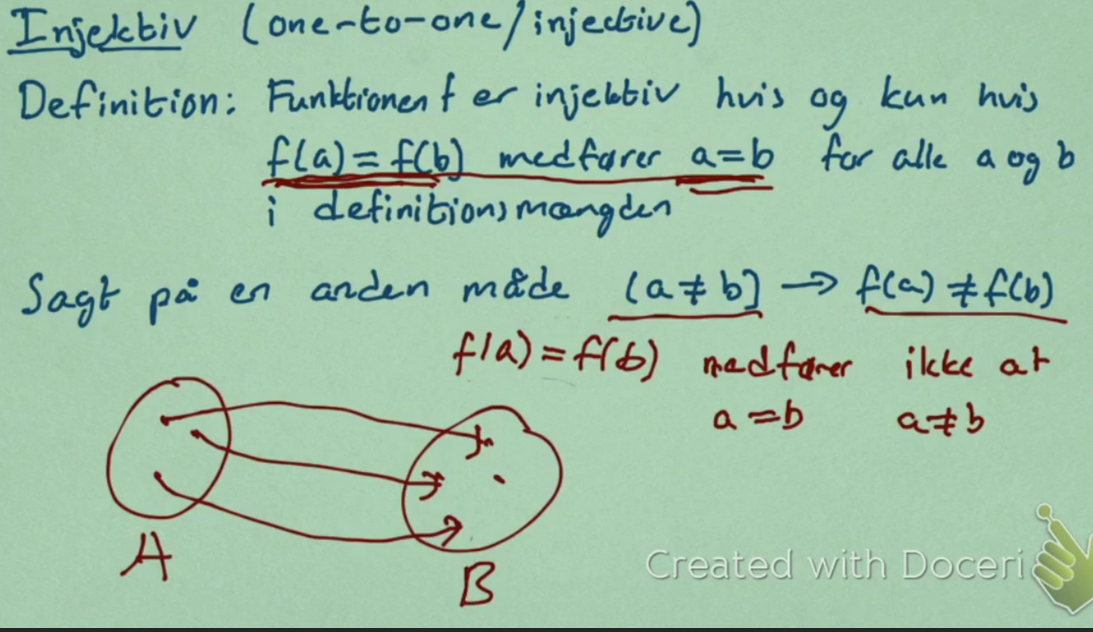 Injektiv (one-to-one/injective)
Definition: Funktionen f er injektiv hvis og kun hvis
f(a) = f(b) medfører a=b for alle a og b
i definitionsmængden
Sagt på en anden måde (a≠b) → f(a) ≠ f(b)
f(a) = f(b) medfører ikke at
a = b a≠b
A
B
Created with Doceri